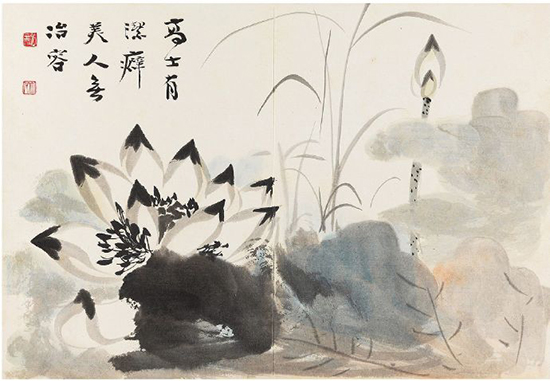 高士有
潔癖
美人無
冶容